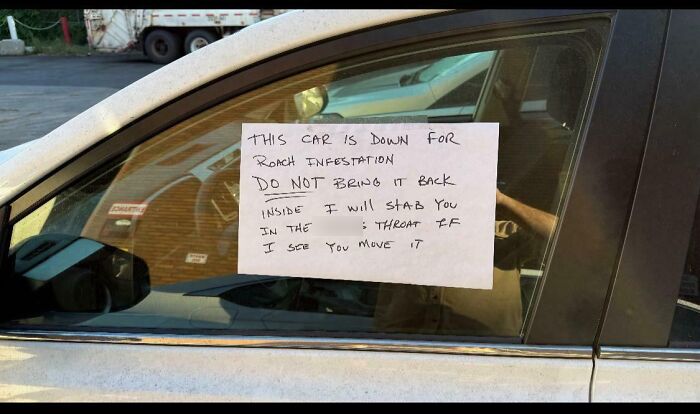 THIS CAR IS DOWN FOR
ROACH INFESTATION
DO NOT BRING IT BACK
INSIDE I will STAB YOU
IN THE : THROAT IF
I SEE YOU MOVE IT